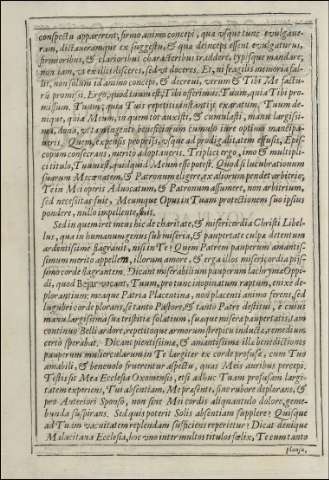 conspectu apparerent; firmo animo concepi, qua usque tunc evulgaue-
ram, dictaueramque ex suggestu, & quæ deinceps essent euulgaturus,
firmioribus, & clarioribus characteribus tradere, typisque mandare,
non tam, ut exilit disceres, sed ut doceres. Et, ni fragilis memoria fal-
lit, non solum id animo concepi, & decreui, verum & Tibi Me factu-
rũ promisi. Ergo, quod tuum est, Tibi offerimus: Tuum, quia Tibi pro-
missum. Tuum; quia Tuis repetitis instantijs exaratum, Tuum de-
nique, quia Meum, in quem tot auxisti, & cumulasti, manu largissi-
ma, dona, ut tam ingenti beneficiorum cumulo iure optimo mancipa-
ueris. Quem, expensis proprijs, usque ad prodigalitatem effusis, Epis-
copum consecrans, merito adoptaueris. Triplici ergo, imo & multipli-
ci titulo, Tuum est, quidquid Meum esse potest. Quod si lucubrationum
suarum Mecænatem, & Patronum eligere, ex aliorum pendet arbitrio,
Te in Mei operis Aduocatum, & Patronum assumere, non arbitrium,
sed necessitas fuit, Meumque Opus in Tuam protectionem suo ipsius
pondere, nullo impellente, ruit.
Sed in quem iret meus hic de charitate, & misericordia Christi Libel-
lus, qua in humanum genus sub miseria, & paupertate culpæ detentum
ardentissime flagrauit, nisi in Te? Quem Patrem pauperum amantis-
simum merito appellem, illorum amore, & erga illos misericordia pijs-
simo corde flagrantem. Dicant miserabilium pauperum lachrymæ Oppi-
di, quod Bejar vocant, Tuam, pro tunc inopinatum raptum, enixe de-
plorantium; meaque Patria Placentina, non placenti animo ferens, sed
lugubri corde plorans, se tanto Pastore, & tanto Patre destitui, è cuius
manu largissima sustentata solatium, suæque miseræ paupertatis, tam
continuo Belli ardore, repetitoque armorum strepitu inductæ, remedium
certò sperabat. Dicant pientissimæ, & amantissimæ illæ benedictiones
pauperum muliercularum in Te largiter ex corde profusæ, cum Tuo
amabili, & beneuolo fruerentur aspectu, quas Meis auribus percepi.
Testis sit Mea Ecclesia Oxomensis, etsi adhuc Tuam profusam largi-
tatem experiens, Tui absentiam, Me præsente, sine rubore deplorans, &
pro Anteriori Sponso, non sine Mei cordis aliquantulo dolore, geme-
bunda suspirans. Sed quis poterit Solis absentiam supplere? Quisque
ad Tuam vacuitatem replendam suspiciens reperietur? Dicat denique
Malacitana Ecclesia, hoc uno inter multos titulos fœlix, Te cum tanto
plausu,